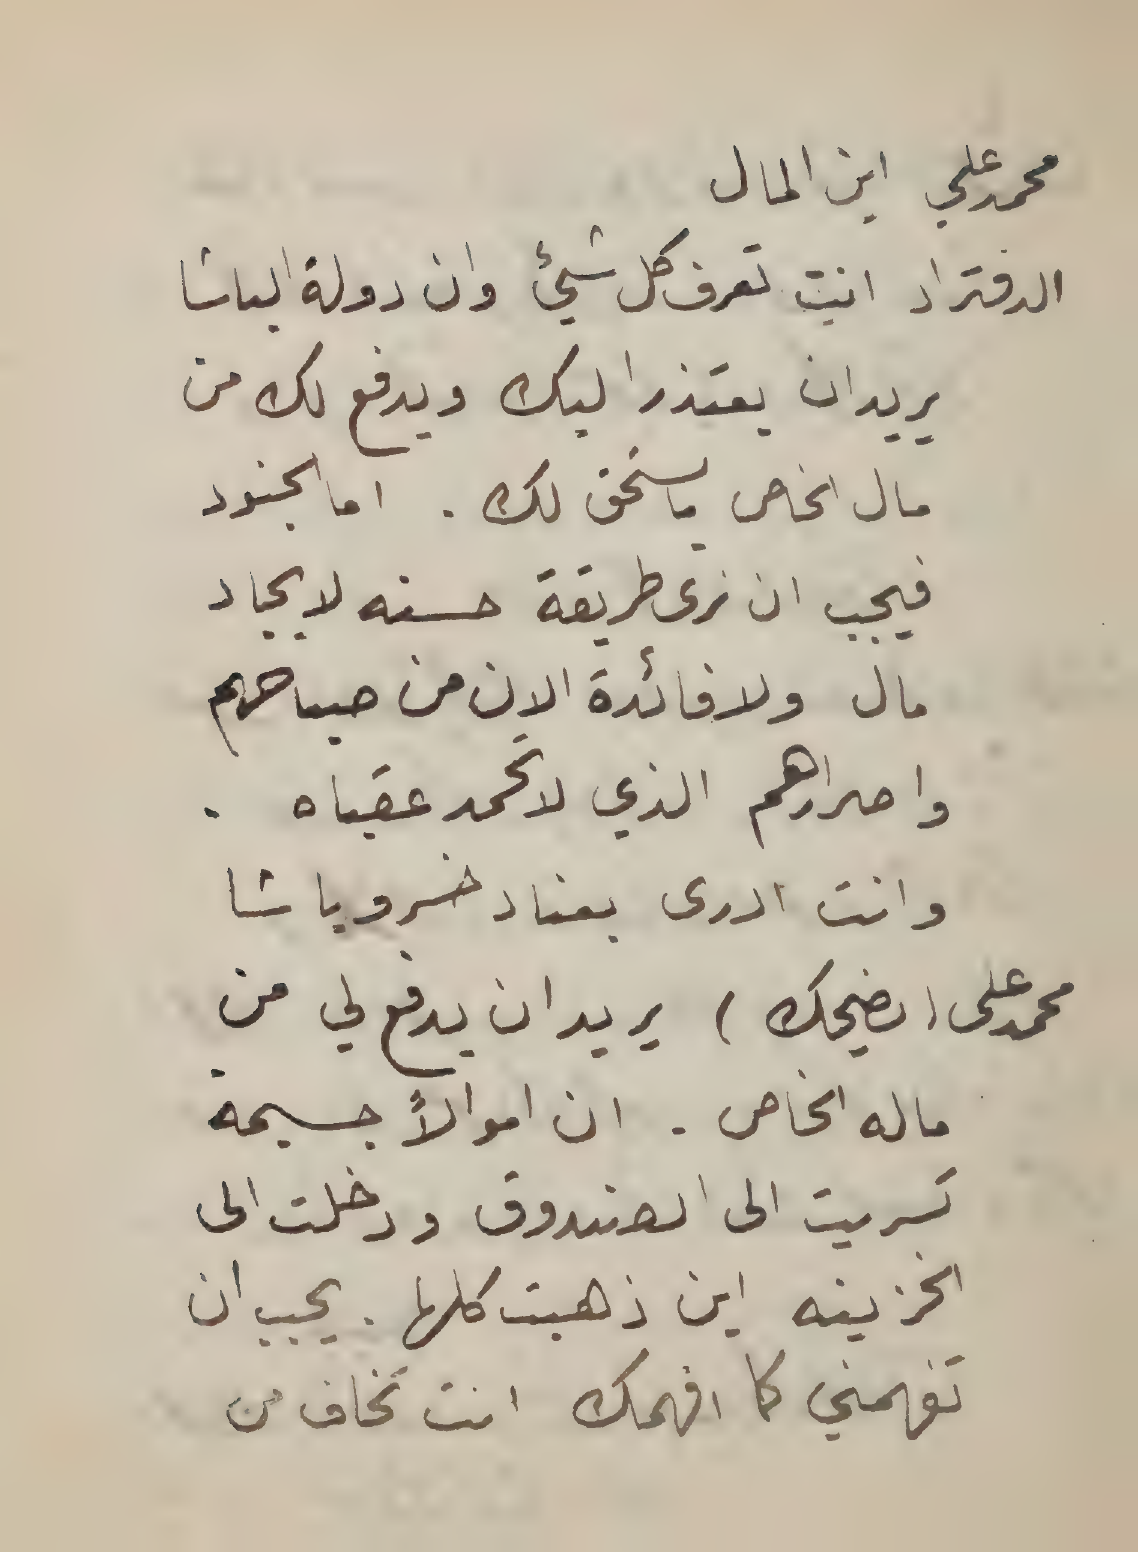 محمد علي اين المال
الدفتردار انت تعرف كل شيئ وان دولة الباشا
يريد ان يعتذر اليك ويدفع لك من
مال الخاص ما يستحق لك . اما الجنود
فيجب ان نرى طريقة حسنه لايجاد
مال ولا فائدة الان من صياحهم
واصرارهم الذي لا تحمد عقباه .
وانت ادرى بعناد خسرو باشا
محمد على (يضحك) يريد ان يدفع لي من
ماله الخاص . ان اموالاً جسيمة
تسربت الى الصندوق ودخلت الى
الخزينه اين ذهبت كلها . يجب ان
تفهمني كما افهمك انت تخاف من